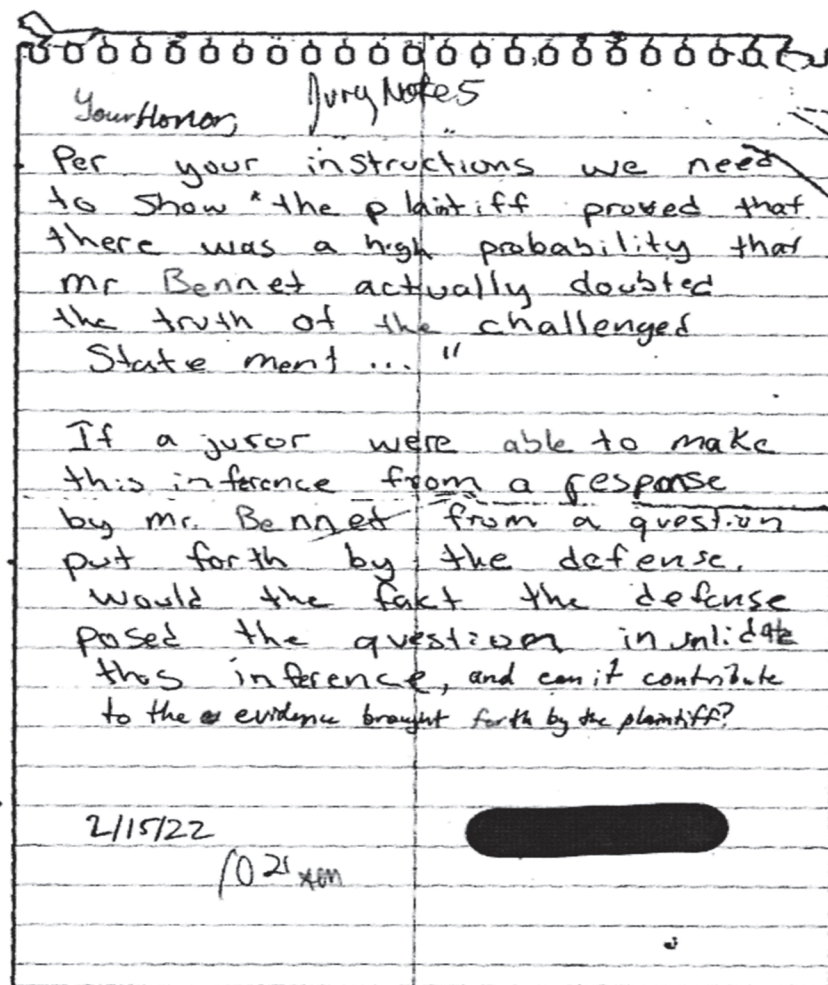 Jury Note 5
Your Honor,
Per your instructions we need
to show "the plaintiff proved that
there was a high probability that
mr Bennet actually doubted
the truth of the challenged
State ment ... "
If a juror were able to make
this inference from a response
by mr. Bennet from a question
put forth by the defense.
would the fact the defense
posed the question invalidate
this inference, and can it contribute
to the evidence brought forth by the plaintiff?
2/15/22
10 21 am